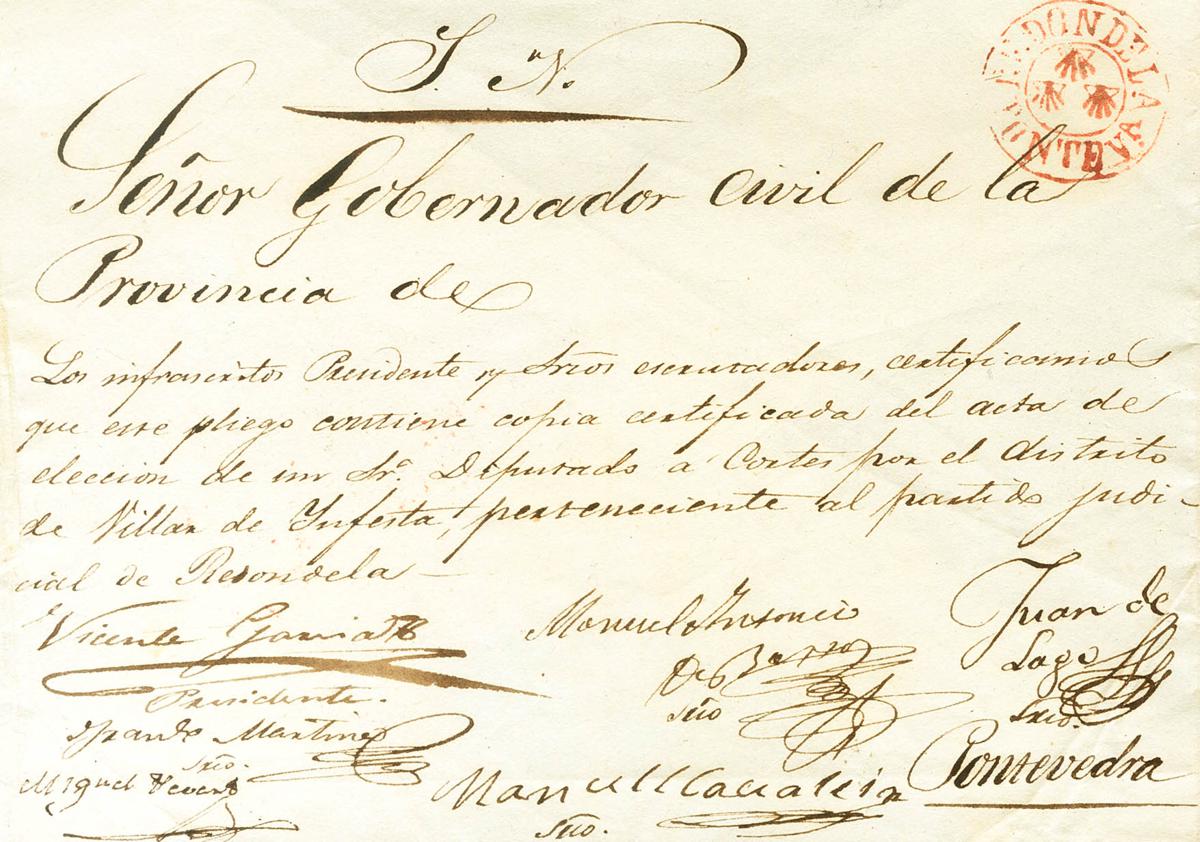 S. N.
REDONDELA
PONTEVA
Señor Gobernador Civil de la
Provincia de
Los infrascritos Presidente y Srios escrutadores, certificamos
que este pliego contiene copia certificada del acta de
eleccion de un Sr. Diputado a Cortes por el distrito
de Villar de Infesta, perteneciente al partido judi-
cial de Redondela
Vicente Garcia
Presidente.
Manuel Antonio
De
Srio
Juan de
Lago
Srio.
Martinez
Srio.
Miguel
Manuel
Srio.
Pontevedra